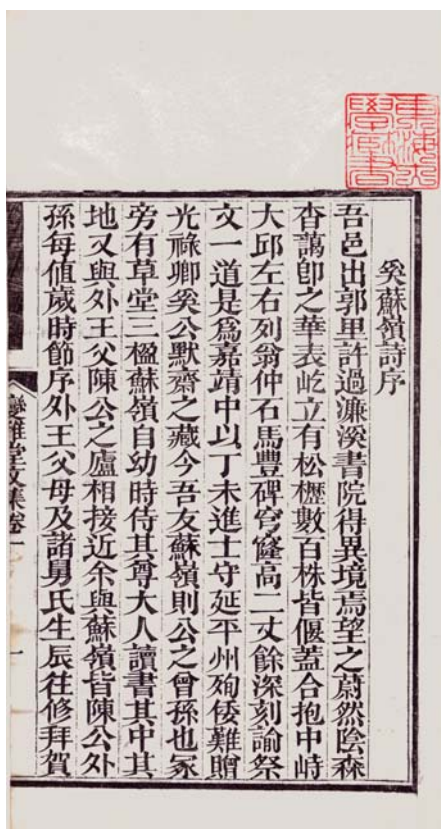 奚蘇嶺詩序
吾邑出郭里許過濂溪書院得異境焉望之蔚然陰森
杳藹卽之華表屹立有松櫪數百株皆偃蓋合抱中峙
大邱左右列翁仲石馬豐碑穹窿高二丈餘深刻諭祭
文一道是爲嘉靖中以丁未進士守延平州殉倭難贈
光祿卿奚公默齋之藏今吾友蘇嶺則公之曾孫也冢
旁有草堂三楹蘇嶺自幼時侍其尊大人讀書其中其
地又與外王父陳公之廬相接近余與蘇嶺皆陳公外
孫每值歲時節序外王父母及諸舅氏生辰往修拜賀
變雅堂文集卷一
一